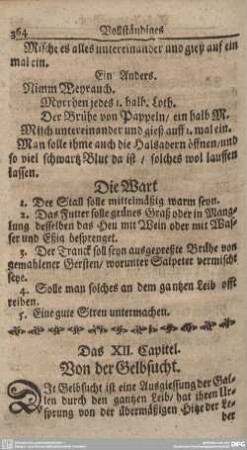 364 Vollständiges
Mische es alles untereinander und gieß auf ein
mal ein.
Ein Anders.
Nimm Weyrauch.
Myrrhen jedes 1. halb. Loth.
Der Brühe von Pappeln / ein halb M.
Misch untereinander und gieß auff 1. mal ein.
Man solle ihme auch die Halsadern öffnen/und
so viel schwartz Blut da ist / solches wol lauffen
lassen.
Die Wart
1. Der Stall solle mittelmäßig warm seyn.
2. Das Futter solle grünes Graß oder in Mang-
lung desselben das Heu mit Wein oder mit Was-
ser und Eßig besprenget.
3. Der Tranck soll seyn ausgepreßte Brühe von
gemahlener Gersten/ worunter Salpeter vermischt
seye.
4. Solle man solches an dem gantzen Leib offt
reiben.
5. Eine gute Streu untermachen.
Das XII. Capitel.
Von der Gelbsucht.
DIe Gelbsucht ist eine Ausgiessung der Gal-
len durch den gantzen Leib/ hat ihren Ur-
sprung von der übermäßigen Hitze der Le-
ber